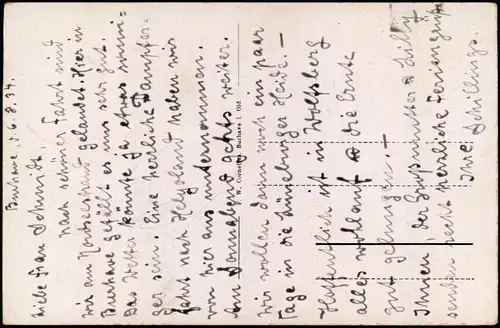 Burhave d. 6.8.34.
Liebe Frau Schmidt
Nach schöner Fahrt sind
wir am Nordseestrand gelandet. Hier in
Burhave gefällt es uns sehr gut.
Das Wetter könnte ja etwas sonni-
ger sein. Eine herrliche Dampfer-
fahrt nach Helgoland haben wir
von hier aus unternommen.
Am Sonnabend gehts weiter.
Wir wollen dann noch ein paar
Tage in die Lüneburger Heide. —
Hoffentlich ist in Wolfsberg
alles wohlauf u. die Ernte
gut gelungen. —
Ihnen, der Großmutter u. Lilly
senden recht herzliche Feriengrüße
Ihre Schillings.
Burhave i. Old.